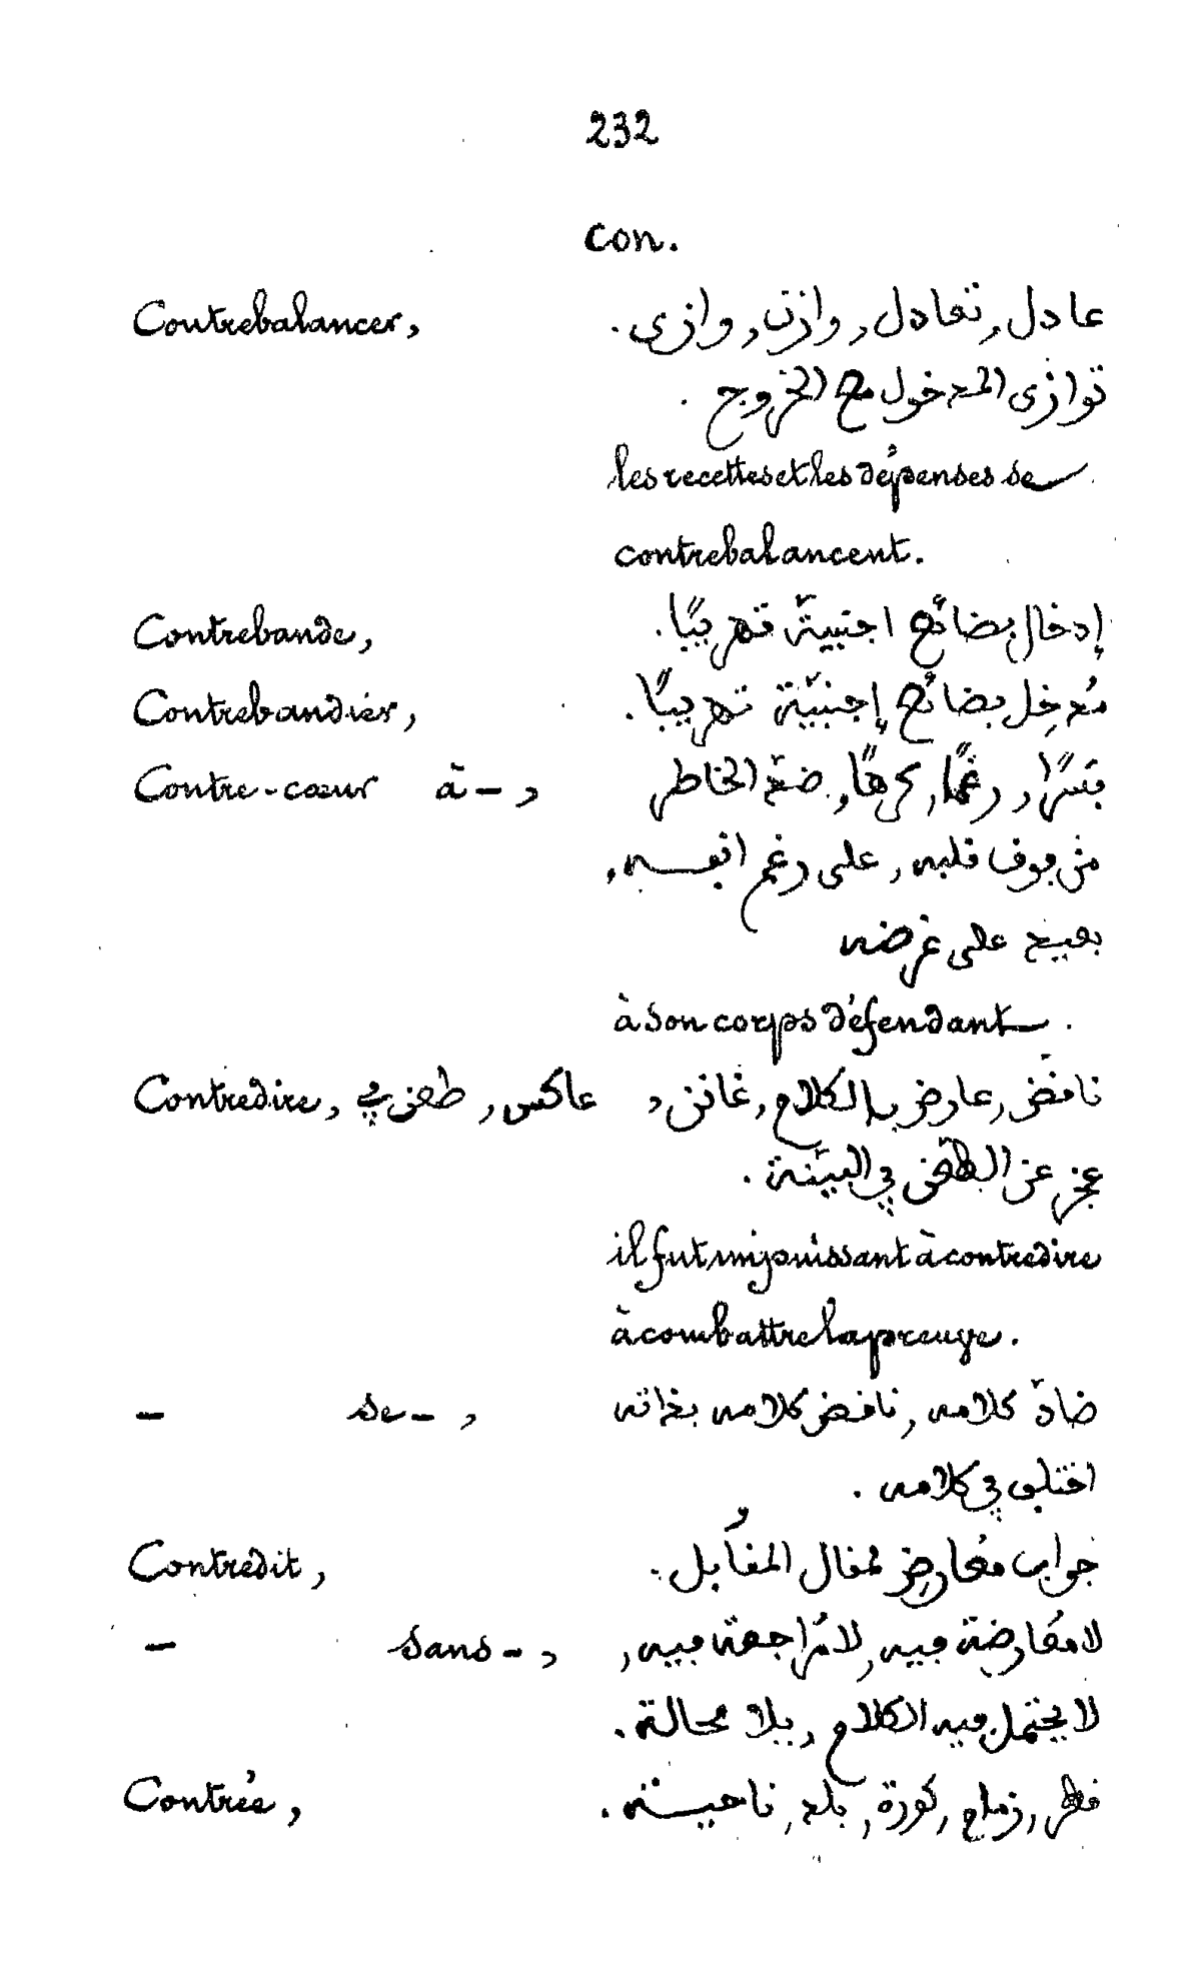 232
con.
Contrebalancer, عادل, تعادل, وازن, وازى.
توازى المدخول مع الخروج.
les recettes et les dépenses se
contrebalancent.
Contrebande, إدخال بضائع اجنبيّة تهريبًا.
Contrebandier, مُدخِل بضائع إجنبيّة تهريبًا.
Contre-cœur à -, قسرًا, رغمًا, كرهًا, ضدّ الخاطر
من فوق قلبه, على رغم انفسه,
على غرضه
à son corps défendant.
Contredire, ناقض, عارض بالكلام, عاكس, طعن في
عجز عن الطعن في البيّنة.
il fut impuissant à contredire
à combattre la preuve.
— se -, ضادّ كلامه, ناقض كلامه بذاته
اختلف في كلامه.
Contredit, جواب مُعارض لمقال المقابل.
— sans -, لا مُعارضة فيه, لا مُراجعة فيه,
لا يحتمل فيه الكلام, بلا محالة.
Contrée, قطر, كورة, بلد, ناحية.